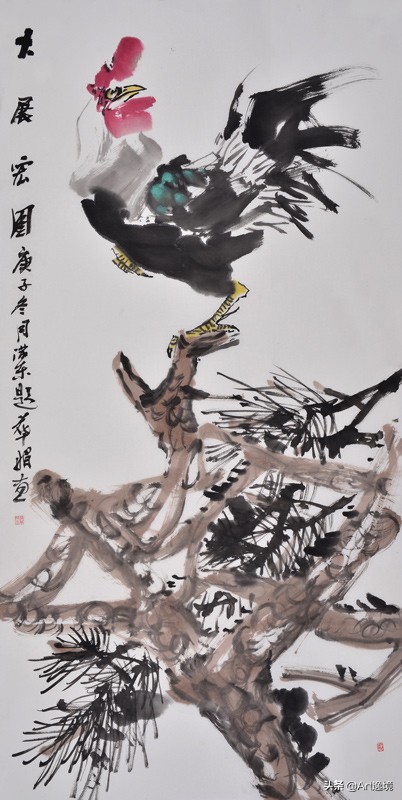 大展宏图庚子冬月题華娟画
头条 @Art逸境